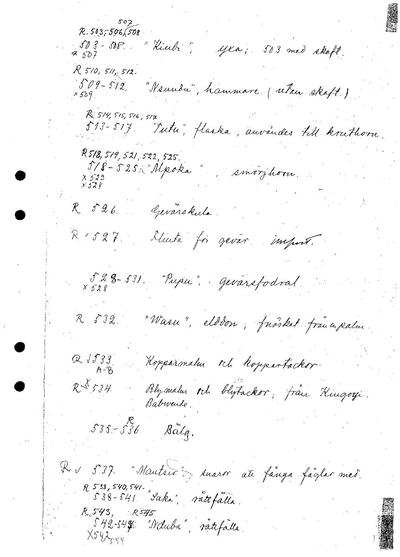 507
R 503, 506, 508
503-508. "Kiubi", yxa; 503 med skaft.
x 507
R 510, 511, 512.
509-512. "Nsunbu", hammare (utan skaft.)
x 509
R 514, 515, 516, 517
513-517. "Tutu", flaska, användes till kruthorn.
R 518, 519, 521, 522, 525.
518-525. "Mpoka", smörjhorn.
x 523
x 524
R 526. Gevärskula
R 527. Flinta för gevär. import.
528-531. "Pupu", gevärsfodral
x 528
R 532. "Wasu", elddon; fnösket från en palm.
R 533 Kopparmalm och koppartackor.
A-B
R x 534. Blymalm och blytackor, från Kingoyi.
Babwende.
R
535-536 Bälg.
R 537. snaror att fånga fåglar med.
R 538, 540, 541.
538-541. "Taka", råttfälla.
R 543, R 545
542- "Ndubu", råttfälla.
X542
544